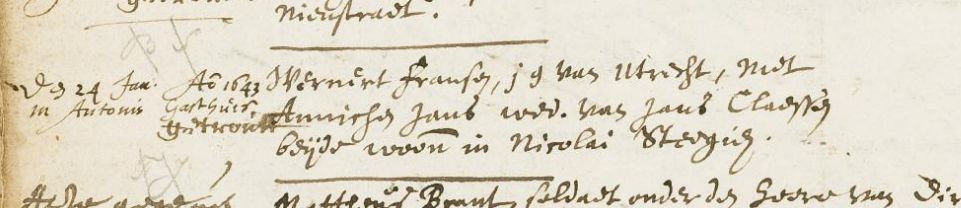 Nieustraet.
Den 24 Jan. Ao 1643
in Antonis Gasthuis
getrout
Wernert Fransen, j g van Utrecht, met
Annichen Jans wed. van Jans Claessen
beijde woon in Nicolai Steegien.
Mattheus Brant, soldaet onder den Heere van Dir